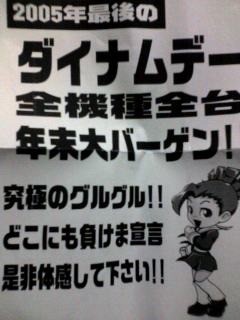 2005年最後の
ダイナムデー
全機種全台
年末大バーゲン!
究極のグルグル!!
どこにも負けま宣言
是非体感して下さい!!